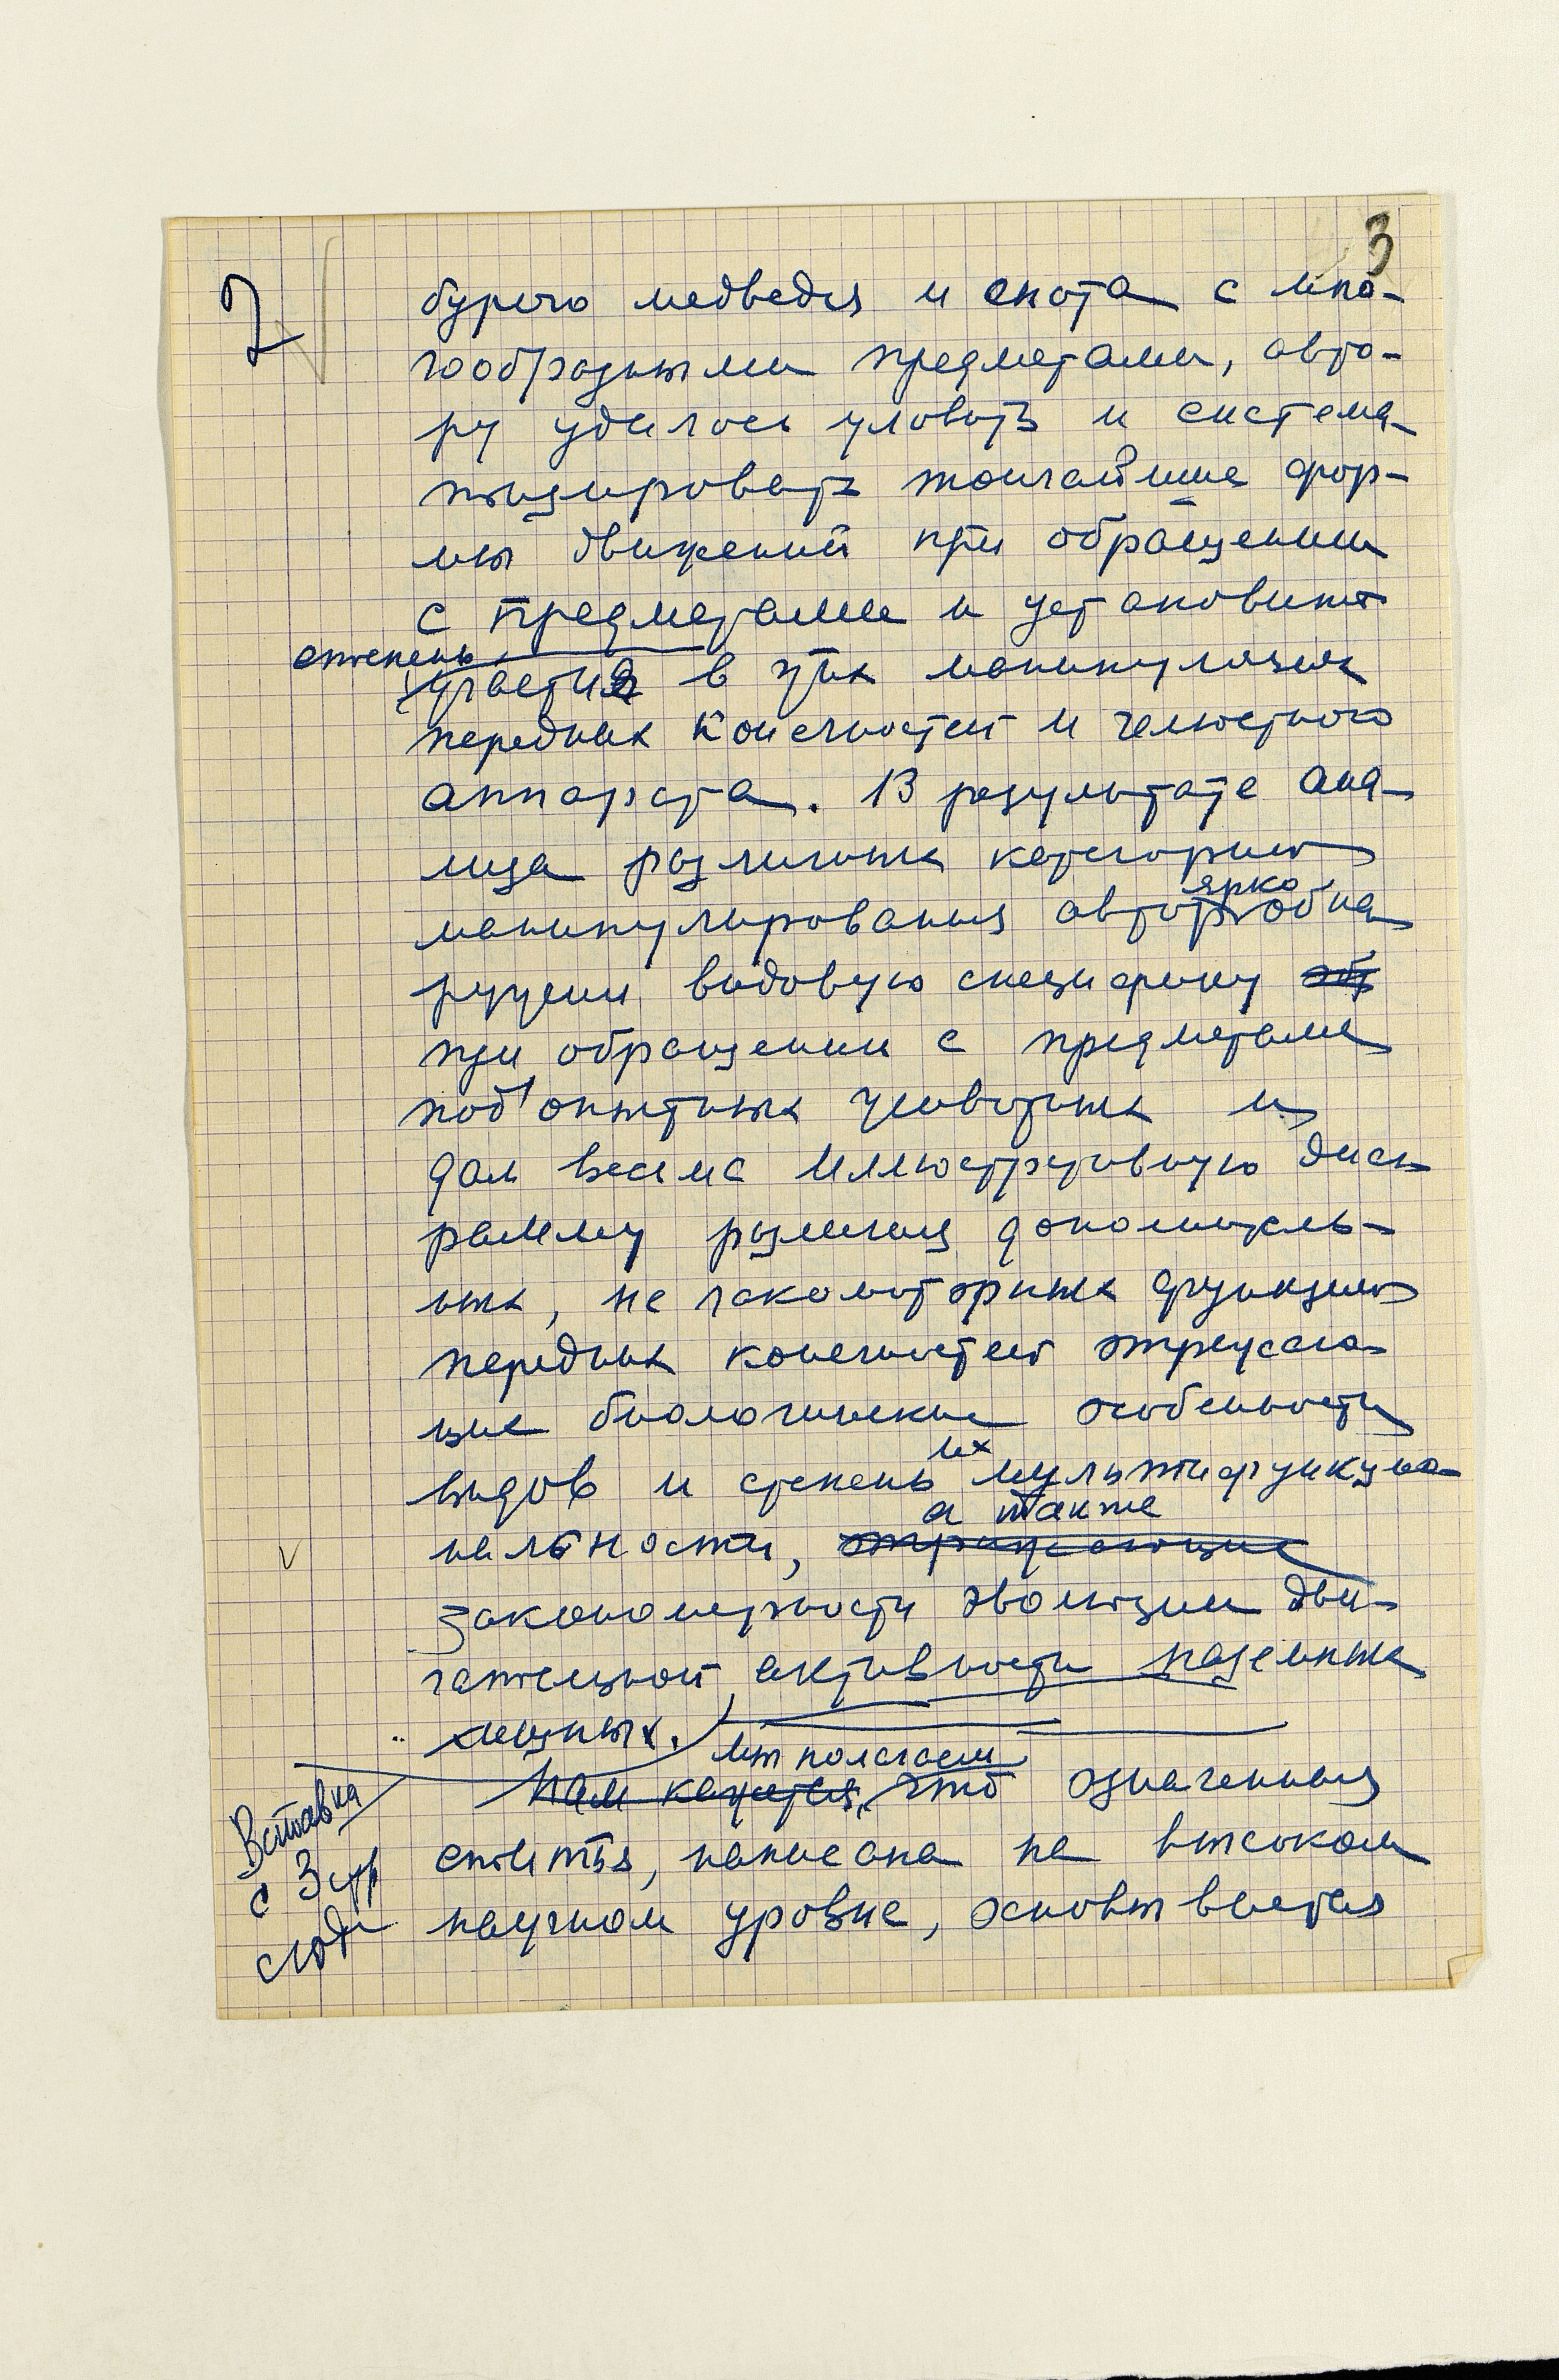 3
2
бурого медведя и енота с мно-
гообразными предметами, авто-
ру удалось уловить и система-
тизировать тончайшие фор-
мы движений при обращении
с предметами и установить
степень
участия в этих манипуляциях
передних конечностей и челюстного
аппарата. В результате ана-
лиза различных категорий
ярко
манипулирования автор обна
ружил видовую специфику
при обращении с предметами
подопытных животных и
дал весьма иллюстративную диаг
рамму различия дополнитель-
ных, не локомоторных функций
передних конечностей отражаю
щие биологические особенности
их
видов и степень мультифункцио
а также
нальности, отражающие
закономерности эволюции дви-
гательной активности наземных
хищных.
мы полагаем
Нам кажется, что означенная
статья, написана на высоком
научном уровне, основывается
Вставка
с 3 стр
сюда